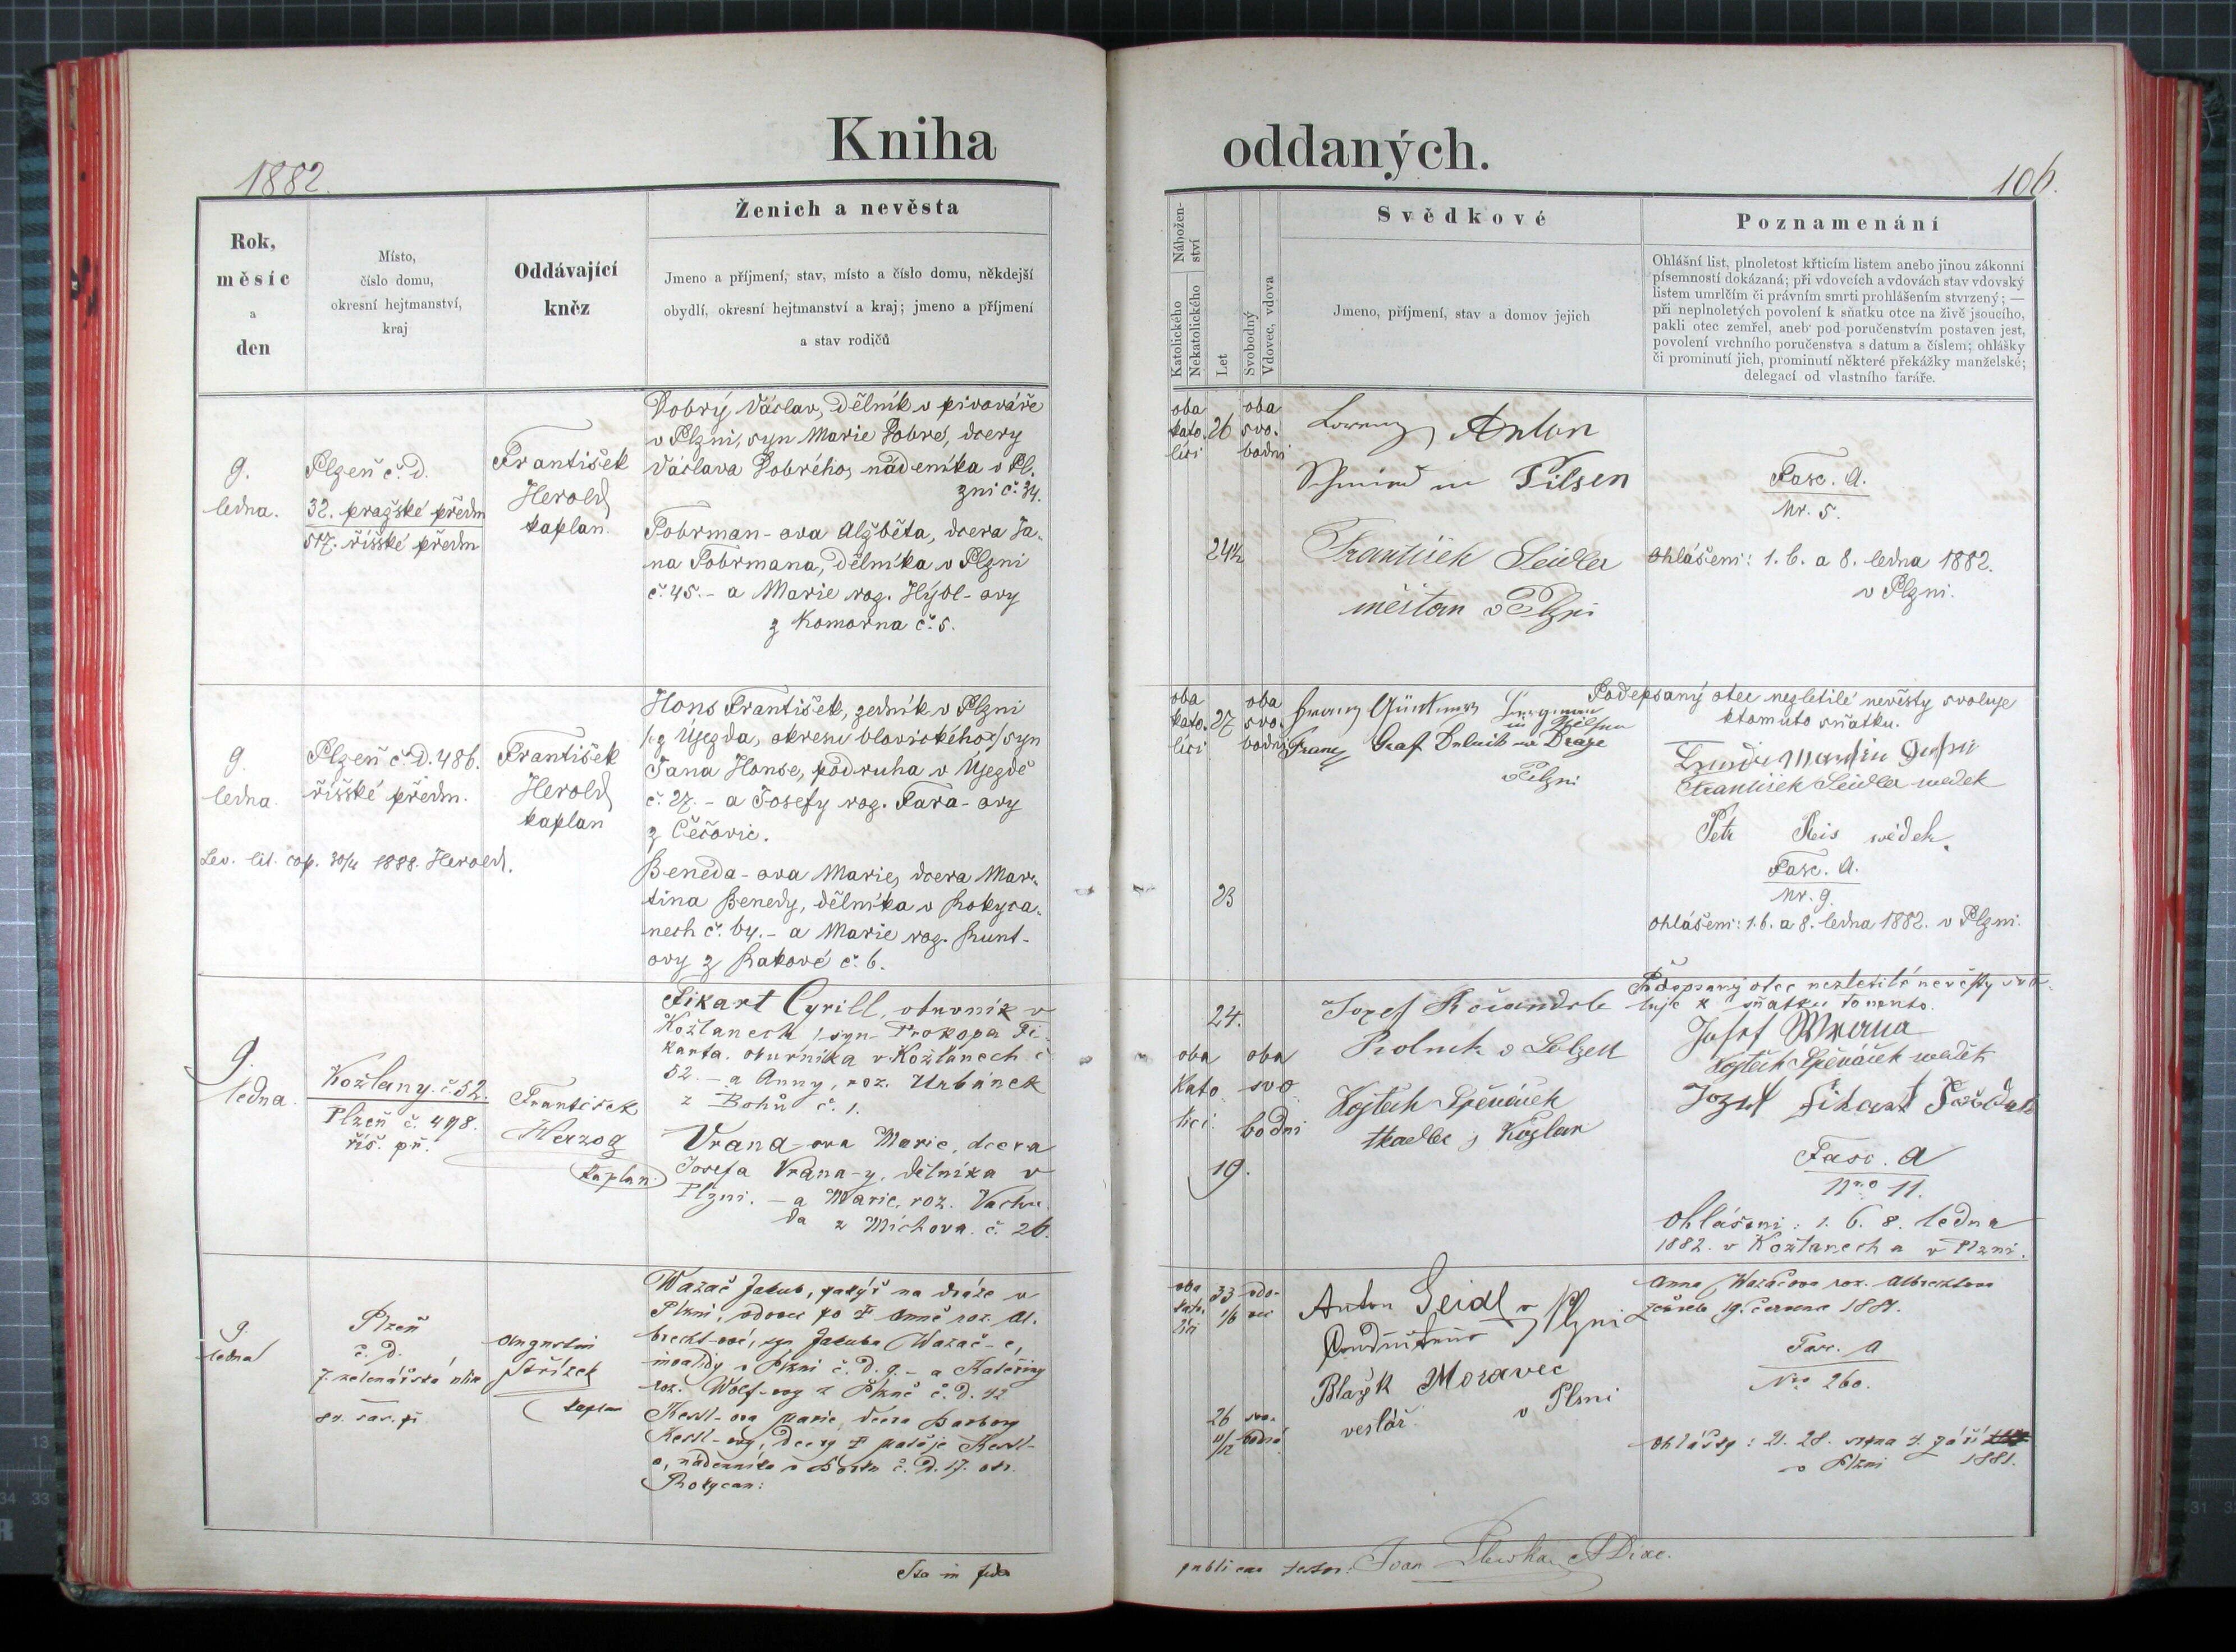 Kniha oddaných.
1882.
106.
Rok,
měsíc
a
den
Místo,
číslo domu,
okresní hejtmanství,
kraj
Oddávající
kněz
Ženich a nevěsta
Jmeno a příjmení, stav, místo a číslo domu, někdejší
obydlí, okresní hejtmanství a kraj; jmeno a příjmení
a stav rodičů
Nábožen-
ství
Katolického
Nekatolického
Let
Svobodný
Vdovec, vdova
Svědkové
Jmeno, příjmení, stav a domov jejich
Poznamenání
Ohlášní list, plnoletost křticím listem anebo jinou zákonní
písemností dokázaná; při vdovcích a vdovách stav vdovský
listem umrlčím či právním smrti prohlášením stvrzený; —
při neplnoletých povolení k sňatku otce na živě jsoucího,
pakli otec zemřel, aneb pod poručenstvím postaven jest,
povolení vrchního poručenstva s datum a číslem; ohlášky
či prominutí jich, prominutí některé překážky manželské;
delegací od vlastního faráře.
9.
ledna.
Plzeň č. d.
32. pražské předm
517. říšské předm
František
Herold
kaplan.
Dobrý Václav, dělník v pivováře
v Plzni, syn Marie Dobré, dcery
Václava Dobrého, nádeníka v Pl.
zni č. 34.
Fobrman-ova Alžběta, dcera Ja-
na Fobrmana, dělníka v Plzni
č. 45. - a Marie roz. Hýbl-ovy
z Komorna č. 5.
oba
kato.
líci
26
24½
oba
svo.
bodni
Lorenz Anton
Schmied in Pilsen
František Seidler
měšťan v Plzni
Fasc. A.
Nr. 5.
Ohlášeni: 1. 6. a 8. ledna 1882.
v Plzni.
9.
ledna.
Plzeň č. D. 486.
říšské předm.
František
Herold
kaplan
Lev. lit. cop. 1888. Herold.
Hons František, zedník v Plzni
/z Újezda, okresu blovického/ syn
Jana Honse, podruha v Újezdě
č. 27. - a Josefy roz. Fara-ovy
z Čečovic.
Beneda-ova Marie, dcera Mar-
tina Benedy, dělníka v Rokyca-
nech č. 64. - a Marie roz. Runt-
ovy z Rakové č. 6.
oba
kato.
líci
27
23
oba
svo.
bodni
Franz
Graf
Plzni
Podepsaný otec nezletilé nevěsty svoluje
ktomuto sňatku.
František Seidler swedek
Petr Reis swědek.
Fasc. A.
Nr. 9.
Ohlášeni: 1. 6. a 8. ledna 1882. v Plzni.
9.
ledna.
Kožlany. č. 52.
Plzeň č. 498.
říš. př.
František
Herzog
kaplan.
Fikart Cyrill, obuvník v
Kožlanech, syn Prokopa Fi-
karta, obuvníka v Kožlanech č
52. - a Anny, roz. Urbánek
z Bohů č. 1.
Vrana-ova Marie, dcera
Josefa Vrana-y, dělníka v
Plzni. - a Marie, roz. Vachu-
da z Míchova. č. 26.
24.
19.
oba
kato
líci.
oba
svo
bodni
Josef
Rolník
Vojtěch Spěváček
tkadlec z Kožlan
Podepsaný otec nezletilé nevěsty svo-
luje k sňatku tomuto.
Josef Wrana
Vojtěch Spěváček swědek
Jozef Fikart
Fasc. A
Nro 11.
Ohlášeni: 1. 6. 8. ledna
1882. v Kožlanech a v Plzni.
9.
ledna
Plzeň
č. d.
7. ulice
František
Augustin
kaplan
Wazač Jakub, na dráze v
Plzni, vdovec po † Anně roz. Al-
brecht-ové, syn Jakuba Wazač-e,
invalidy v Plzni č. D. 9. - a Kateřiny
roz. Wolf-ovy z Plzně č. D. 42
Kessl-ova Marie, dcera Barbory
Kessl-ovy, dcery † Matěje Kessl-
a, nádeníka v č. D. 17. okr.
Rokycan:
oba
kato.
líci
33
1/6
vdo-
vec
26
11/12
svo-
bodná
Anton Seidl v Plzni
Blažek Moravec
v Plzni
Anna Wazačova roz. Albrechtova
zemřela 19. června 1881.
Fasc. A
Nro 260.
Ohlášky: 21. 28. srpna 4. září
v Plzni 1881.
Ita in fidem
publicam testor: A Diac.